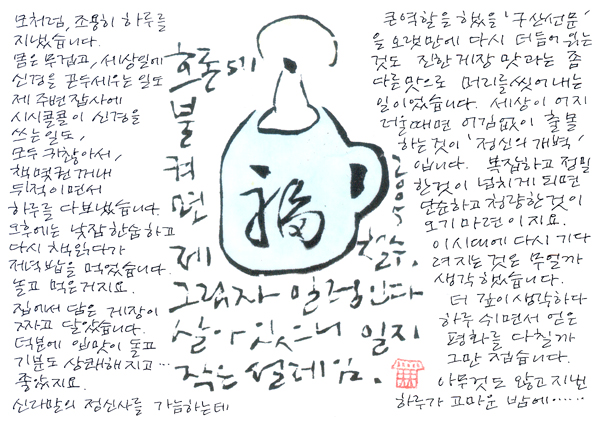 모처럼, 조용히 하루를
지냈습니다.
몸은 무겁고, 세상일에
신경을 곤두세우는 일도
제 주변잡사에
시시콜콜이 신경을
쓰는 일도,
모두 귀찮아서,
책 몇권 꺼내
뒤적이면서
하루를 다 보냈습니다.
오후에는 낮잠 한숨 하고
다시 책읽다가
저녁밥을 먹었습니다.
놀고 먹은거지요.
집에서 담은 게장이
짜지고 달았습니다.
덕분에 입맛이 돌고
기분도 상쾌해지고…
좋았지요.
신라말의 정신사를 가늠하는데
촛불 켜면
福
제 그림자 일렁인다
살아있으니 일지
작은 설레임.
2005 철수.
큰역할을 했을 '구산선문'
을 오랫만에 다시 더듬어 읽는
것도 진한 게장 맛과는 좀
다른 맛으로 머리를 씻어 내는
일이었습니다. 세상이 어지
러울때면 어김없이 출몰
하는것이 '정신의 개벽'
입니다. 복잡하고 정밀
한것이 넘치게 되면
단순하고 청량한것이
오기 마련이지요.
이 시대에 다시 기다
려지는 것은 무얼까
생각했습니다.
더 깊이 생각하다
하루 쉬면서 얻은
평화를 다칠까
그만 접습니다.
아무것도 않고 지낸
하루가 고마운 밤에……